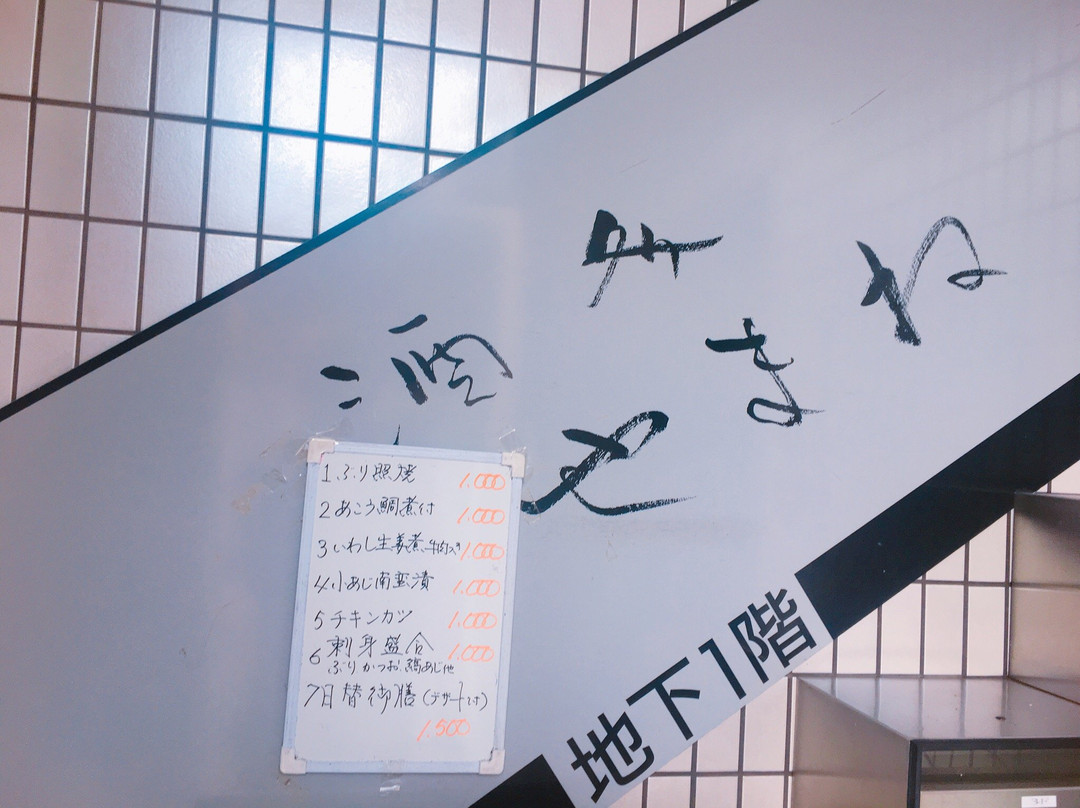 酒
やまね
1 ぶり照焼 1.000
2 あこう鯛煮付 1.000
3 いわし生姜煮、牛肉入き 1.000
4 小あじ南蛮漬 1.000
5 チキンカツ 1.000
6 刺身盛合 1.000
ぶり かつお 縞あじ他
7 日替御膳(デザート付)
1.500
地下1階